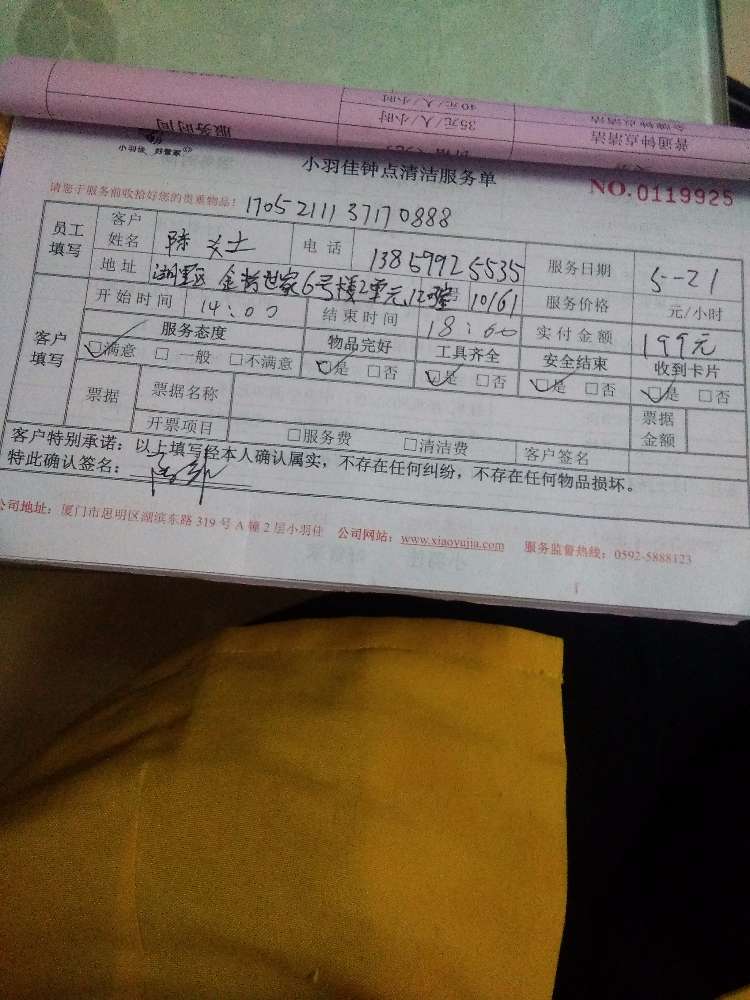 40元/人/小时 金牌钟点清洁
35元/人/小时 普通钟点清洁
服务时间
小羽佳 好管家
小羽佳钟点清洁服务单
NO.0119925
请您于服务前收拾好您的贵重物品: 1705211137170888
员工填写 客户姓名 陈女士 电话 13859925535 服务日期 5-21
地址 湖里区 世家6号楼2单元 10161 服务价格 元/小时
客户填写 开始时间 14:00 结束时间 18:00 实付金额 199元
服务态度 物品完好 工具齐全 安全结束 收到卡片
☑满意 □一般 □不满意 ☑是 □否 ☑是 □否 ☑是 □否 ☑是 □否
票据 票据名称 票据金额
开票项目 □服务费 □清洁费 客户签名
客户特别承诺:以上填写经本人确认属实,不存在任何纠纷,不存在任何物品损坏。
特此确认签名:
公司地址:厦门市思明区湖滨东路319号A幢2层小羽佳 公司网站:www.xiaoyujia.com 服务监督热线:0592-5888123